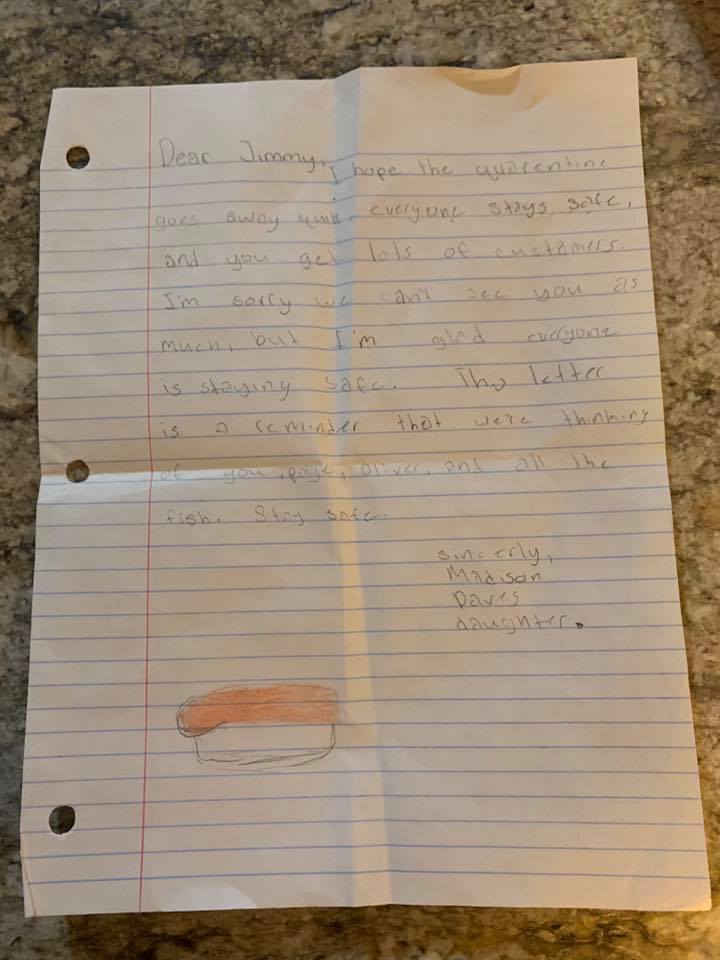 Dear Jimmy,
I hope the quarentine
goes away quik everyone stays safe,
and you get lots of custamers.
I'm sorry we can't see you as
much, but I'm glad everyone
is staying safe. This letter
is a reminder that we're thinking
of you, page, oliver, and all the
fish. Stay safe.
sincerly,
Madison
Daves
daughter.